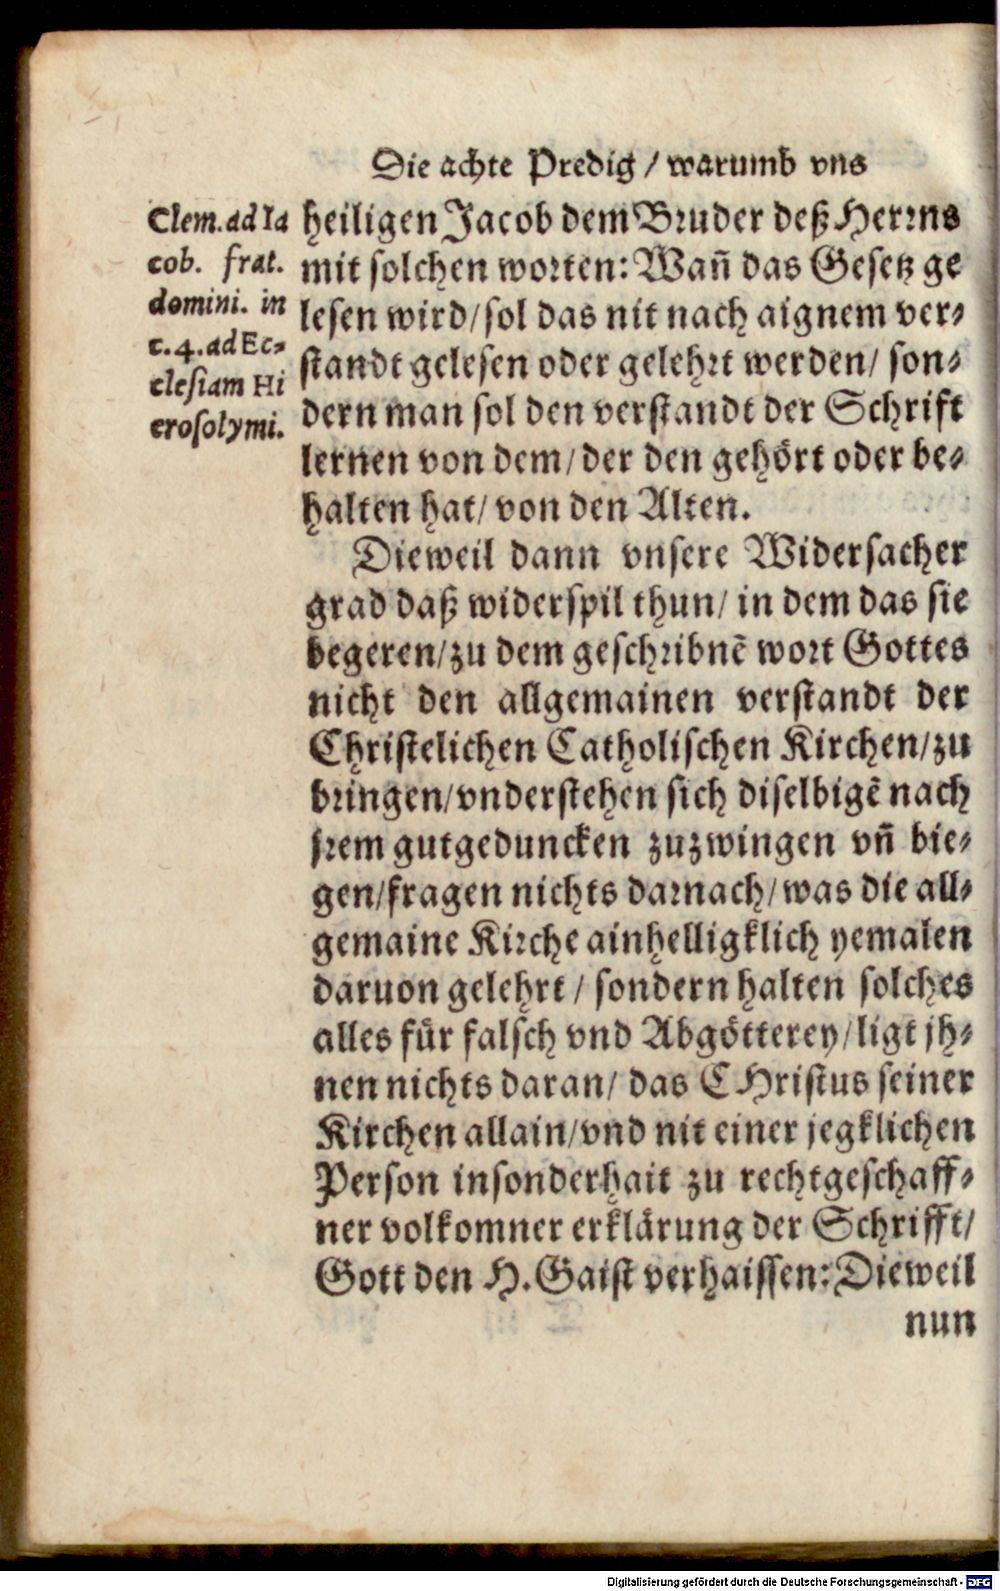 Die achte Predig / warumb vns
Clem. ad Ia
cob. frat.
domini. in
c. 4. ad Ec⸗
clesiam Hi
erosolymi.
heiligen Jacob dem Bruder deß Herrns
mit solchen worten: Wañ das Gesetz ge
lesen wird/ sol das nit nach aignem ver⸗
standt gelesen oder gelehrt werden/ son⸗
dern man sol den verstandt der Schrift
lernen von dem/ der den gehört oder be⸗
halten hat/ von den Alten.
Dieweil dann vnsere Widersacher
grad daß widerspil thun/ in dem das sie
begeren/ zu dem geschribnẽ wort Gottes
nicht den allgemainen verstandt der
Christelichen Catholischen Kirchen/ zu
bringen/ vnderstehen sich diselbigẽ nach
jrem gutgeduncken zuzwingen vñ bie⸗
gen/ fragen nichts darnach/ was die all⸗
gemaine Kirche ainhelligklich yemalen
daruon gelehrt / sondern halten solches
alles für falsch vnd Abgötterey/ ligt jh⸗
nen nichts daran/ das CHristus seiner
Kirchen allain/ vnd nit einer jegklichen
Person insonderhait zu rechtgeschaff⸗
ner volkomner erklärung der Schrifft/
Gott den H. Gaist verhaissen: Dieweil
nun
Digitalisierung gefördert durch die Deutsche Forschungsgemeinschaft - DFG